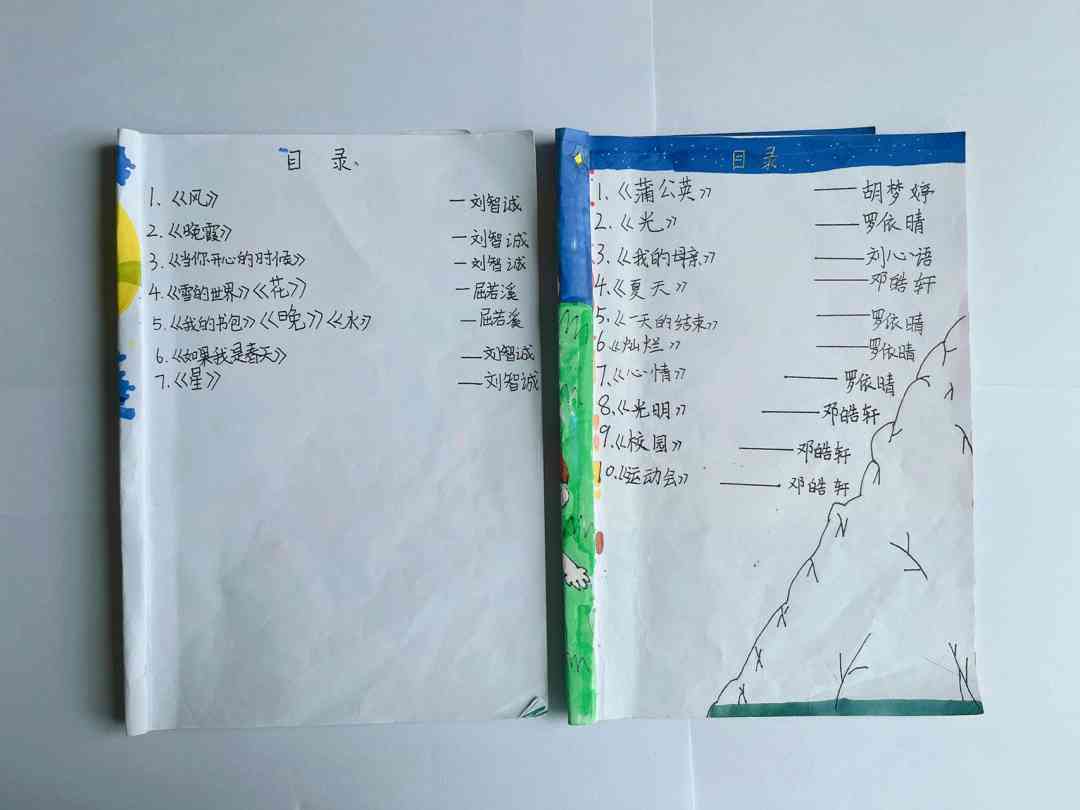 目 录
1.《风》 —刘智诚
2.《晚霞》 —刘智诚
3.《当你开心的时候》 —刘智诚
4.《雪的世界》《花》 —屈若溪
5.《我的书包》《晚》《水》 —屈若溪
6.《如果我是春天》 —刘智诚
7.《星》 —刘智诚
目 录
1.《蒲公英》 ——胡梦婷
2.《光》 ——罗依晴
3.《我的母亲》 ——刘心语
4.《夏天》 ——邓皓轩
5.《一天的结束》 ——罗依晴
6.《灿烂》 ——罗依晴
7.《心情》 ——罗依晴
8.《光明》 ——邓皓轩
9.《校园》 ——邓皓轩
10.《运动会》 ——邓皓轩